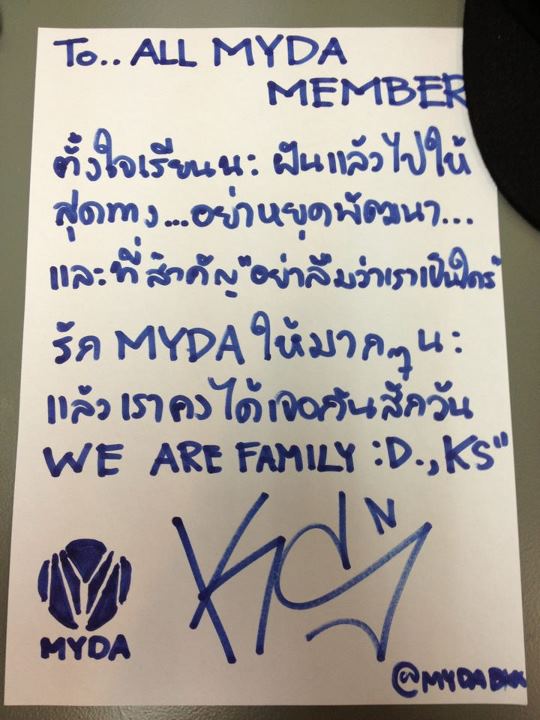 To.. ALL MYDA
MEMBER
ตั้งใจเรียนนะ ฝันแล้วไปให้
สุดทาง...อย่าหยุดพัฒนา...
และที่สำคัญ"อย่าลืมว่าเราเป็นใคร"
รัก MYDA ให้มากๆนะ
แล้วเราคงได้เจอกันสักวัน
WE ARE FAMILY :D.,KS"
MYDA